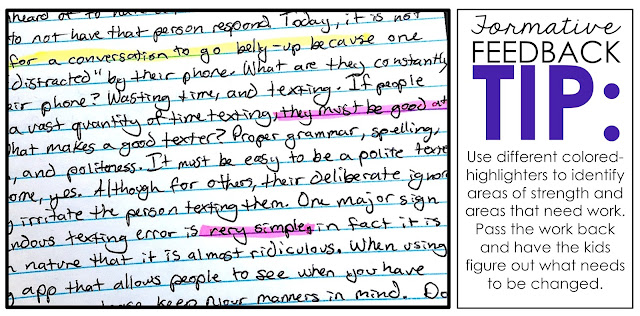 heard of to have
to not have that person respond. Today, it is not
for a conversation to go bely-up because one
distracted" by their phone. What are they constantly
eir phone? Wasting time, and texting. If people
a vast quantity of time texting, they must be good at
hat makes a good texter? Proper grammar, spelling,
, and politeness. It must be easy to be a polite texte
ome, yes. Although for others, their deliberate ignor
irritate the person texting them. One major sign
ndous texting error is very simple, in fact it is
n nature that it is almost ridiculous. When using
app that allows people to see when you have
please keep your manners in mind. Do
Formative
FEEDBACK
TIP:
Use different colored-
highlighters to identify
areas of strength and
areas that need work.
Pass the work back
and have the kids
figure out what needs
to be changed.